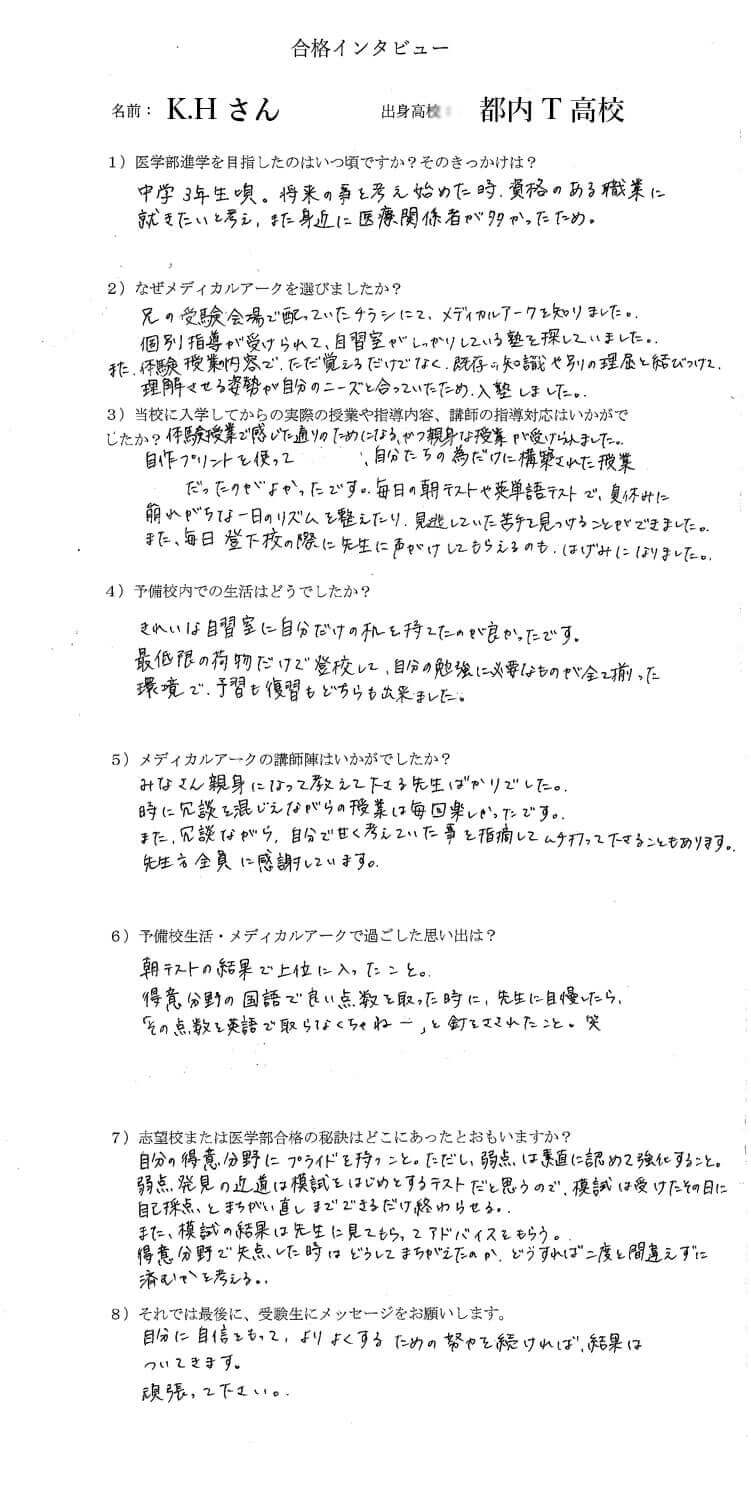 合格インタビュー
名前： K.H さん 出身高校： 都内 T 高校
1）医学部進学を目指したのはいつ頃ですか？そのきっかけは？
中学3年生頃。将来の事を考え始めた時、資格のある職業に
就きたいと考え、また身近に医療関係者が多かったため。
2）なぜメディカルアークを選びましたか？
兄の受験会場で配っていたチラシにて、メディカルアークを知りました。
個別指導が受けられて、自習室がしっかりしている塾を探していました。
また、体験授業内容で、ただ覚えるだけでなく、既存の知識や別の理屈と結びつけて、
理解させる姿勢が自分のニーズと合っていたため、入塾しました。
3）当校に入学してからの実際の授業や指導内容、講師の指導対応はいかがで
したか？体験授業で感じた通りのためになる、かつ親身な授業が受けられました。
自作プリントを使って、自分たちの為だけに構築された授業
だったのがよかったです。毎日の朝テストや英単語テストで、夏休みに
崩れがちな一日のリズムを整えたり、見逃していた苦手を見つけることができました。
また、毎日登下校の際に先生に声がけしてもらえるのも、はげみになりました。
4）予備校内での生活はどうでしたか？
きれいな自習室に自分だけの机を持てたのが良かったです。
最低限の荷物だけで登校して、自分の勉強に必要なものが全て揃った
環境で、予習も復習もどちらも出来ました。
5）メディカルアークの講師陣はいかがでしたか？
みなさん親身になって教えて下さる先生ばかりでした。
時に冗談を混じえながらの授業は毎回楽しかったです。
また、冗談ながら、自分で甘く考えていた事を指摘してムチ打って下さることもあります。
先生方全員に感謝しています。
6）予備校生活・メディカルアークで過ごした思い出は？
朝テストの結果で上位に入ったこと。
得意分野の国語で良い点数を取った時に、先生に自慢したら、
「その点数を英語で取らなくちゃねー」と釘をさされたこと。笑
7）志望校または医学部合格の秘訣はどこにあったとおもいますか？
自分の得意分野にプライドを持つこと。ただし、弱点は素直に認めて強化すること。
弱点発見の近道は模試をはじめとするテストだと思うので、模試は受けたその日に
自己採点とまちがい直しまでできるだけ終わらせる。
また、模試の結果は先生に見てもらってアドバイスをもらう。
得意分野で失点した時はどうしてまちがえたのか、どうすれば二度と間違えずに
済むかを考える。
8）それでは最後に、受験生にメッセージをお願いします。
自分に自信をもって、よりよくするための努力を続ければ、結果は
ついてきます。
頑張って下さい。